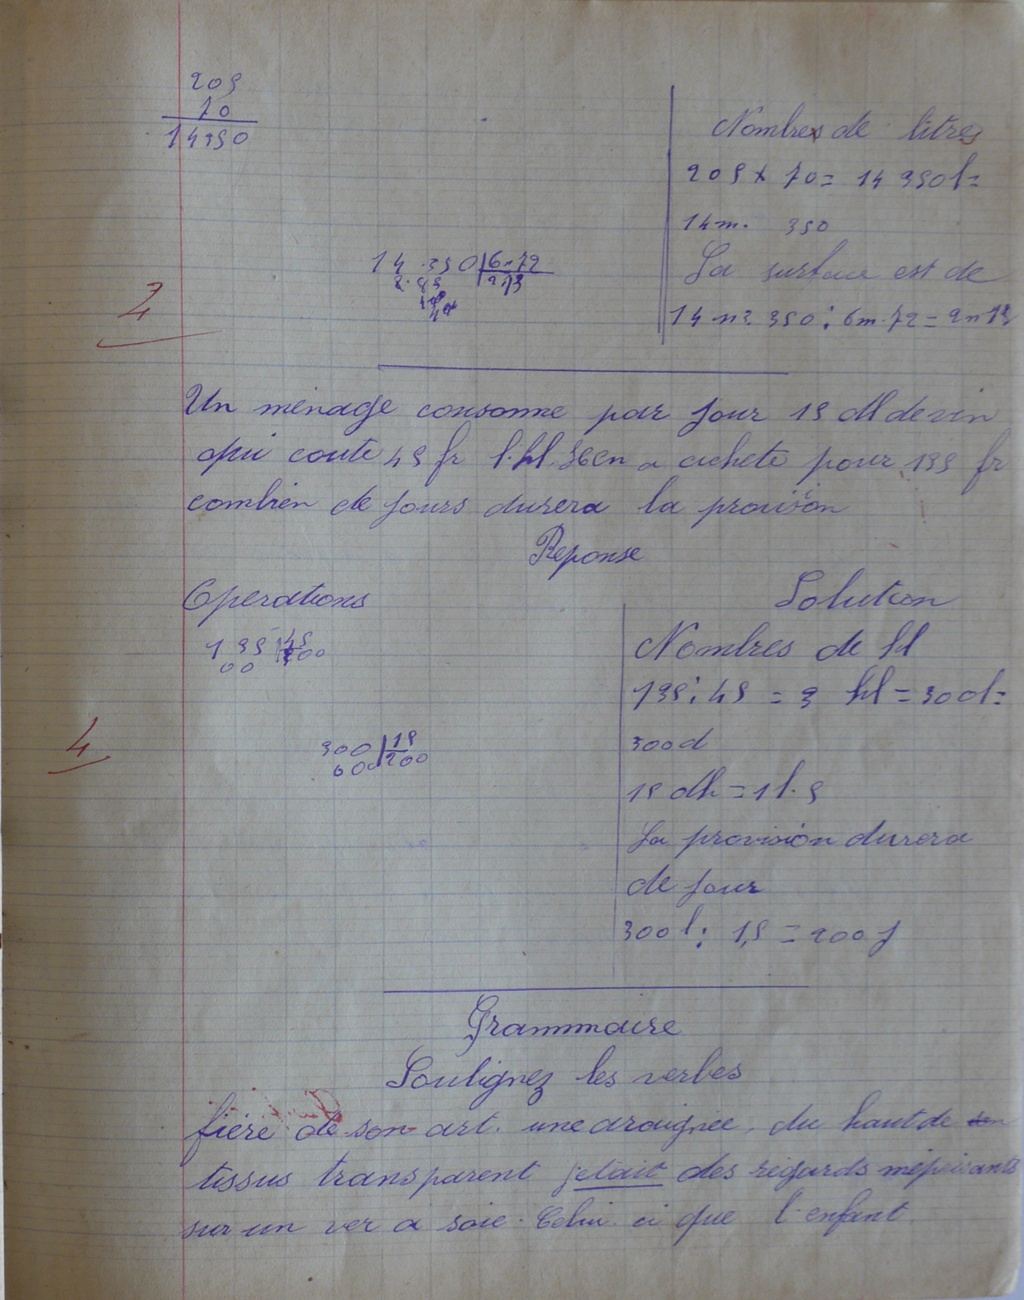 205
70
14350
Nombres de litres
205 x 70 = 14 350 l =
14 m. 350
14 350 | 6.72
La surface est de
14 m3 350 : 6m.72 = 2m 13
2
Un ménage consomme par jour 15 dl de vin
qui coute 45 fr l'hl. On en a acheté pour 135 fr
combien de jours durera la provison
Reponse
Operations
Solution
135 | 45
00
Nombres de hl
135 : 45 = 3 hl = 30 d =
300 | 15
600 200
300 d
4
15 dl = 1 l. 5
La provision durera
de jour
300 l : 1,5 = 200 j
Grammaire
Soulignez les verbes
fière de son art. une araignée, du haut de son
tissus transparent jetait des regards méprisants
sur un ver a soie. Celui ci que l'enfant